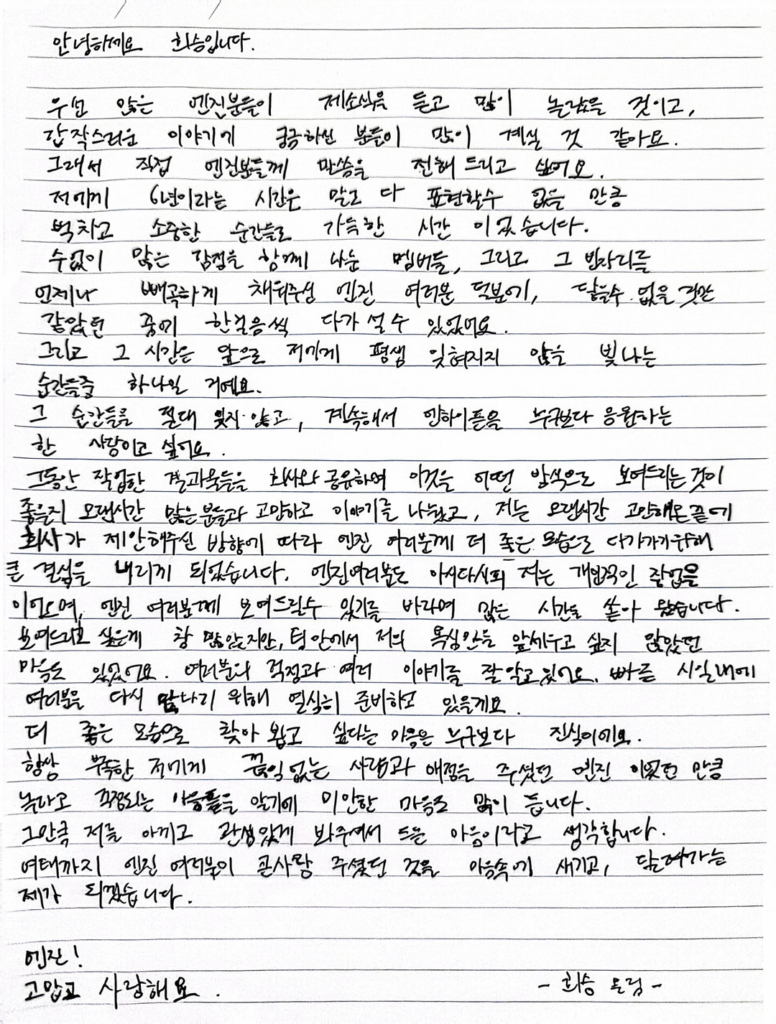 안녕하세요 희승입니다.
우선 많은 엔진분들이 제소식을 듣고 많이 놀랐을 것이고,
갑작스러운 이야기에 궁금하신 분들이 많이 계실 것 같아요.
그래서 직접 엔진분들께 말씀을 전해 드리고 싶어요.
저에게 6년이라는 시간은 말로 다 표현할수 없을 만큼
벅차고 소중한 순간들로 가득한 시간 이었습니다.
수없이 많은 감정을 함께 나눈 멤버들, 그리고 그 빈자리를
언제나 빼곡하게 채워주신 엔진 여러분 덕분에, 닿을수 없을 것만
같았던 꿈에 한걸음씩 다가 설 수 있었어요.
그리고 그 시간은 앞으로 저에게 평생 잊혀지지 않을 빛나는
순간들중 하나일 거예요.
그 순간들을 절대 잊지 않고, 계속해서 엔하이픈을 누구보다 응원하는
한 사람이고 싶어요.
그동안 작업한 결과물들을 회사와 공유하며 이것을 어떤 방식으로 보여드리는 것이
좋을지 오랜시간 많은 분들과 고민하고 이야기를 나눴고, 저는 오랜시간 고민해온 끝에
회사가 제안해주신 방향에 따라 엔진 여러분께 더 좋은 모습으로 다가가기위해
큰 결심을 내리게 되었습니다. 엔진여러분도 아시다시피 저는 개인적인 작업을
이어오며, 엔진 여러분께 보여드릴수 있기를 바라며 많은 시간을 쏟아 왔습니다.
보여드리고 싶은게 참 많았지만, 팀 안에서 저의 욕심만을 앞세우고 싶지 않았던
마음도 있었어요. 여러분의 걱정과 여러 이야기를 잘 알고 있어요. 빠른 시일내에
여러분을 다시 만나기 위해 열심히 준비하고 있을게요.
더 좋은 모습으로 찾아 뵙고 싶다는 마음은 누구보다 진심이에요.
항상 부족한 저에게 끊임없는 사랑과 애정을 주셨던 엔진 이었던 만큼
놀라고 걱정되는 마음들을 알기에 미안한 마음도 많이 듭니다.
그만큼 저를 아끼고 관심있게 봐주셔서 드는 마음이라고 생각합니다.
여태까지 엔진 여러분이 주셨던 것을 마음속에 새기고, 달려가는
제가 되겠습니다.
엔진!
고맙고 사랑해요.
- 희승 드림 -